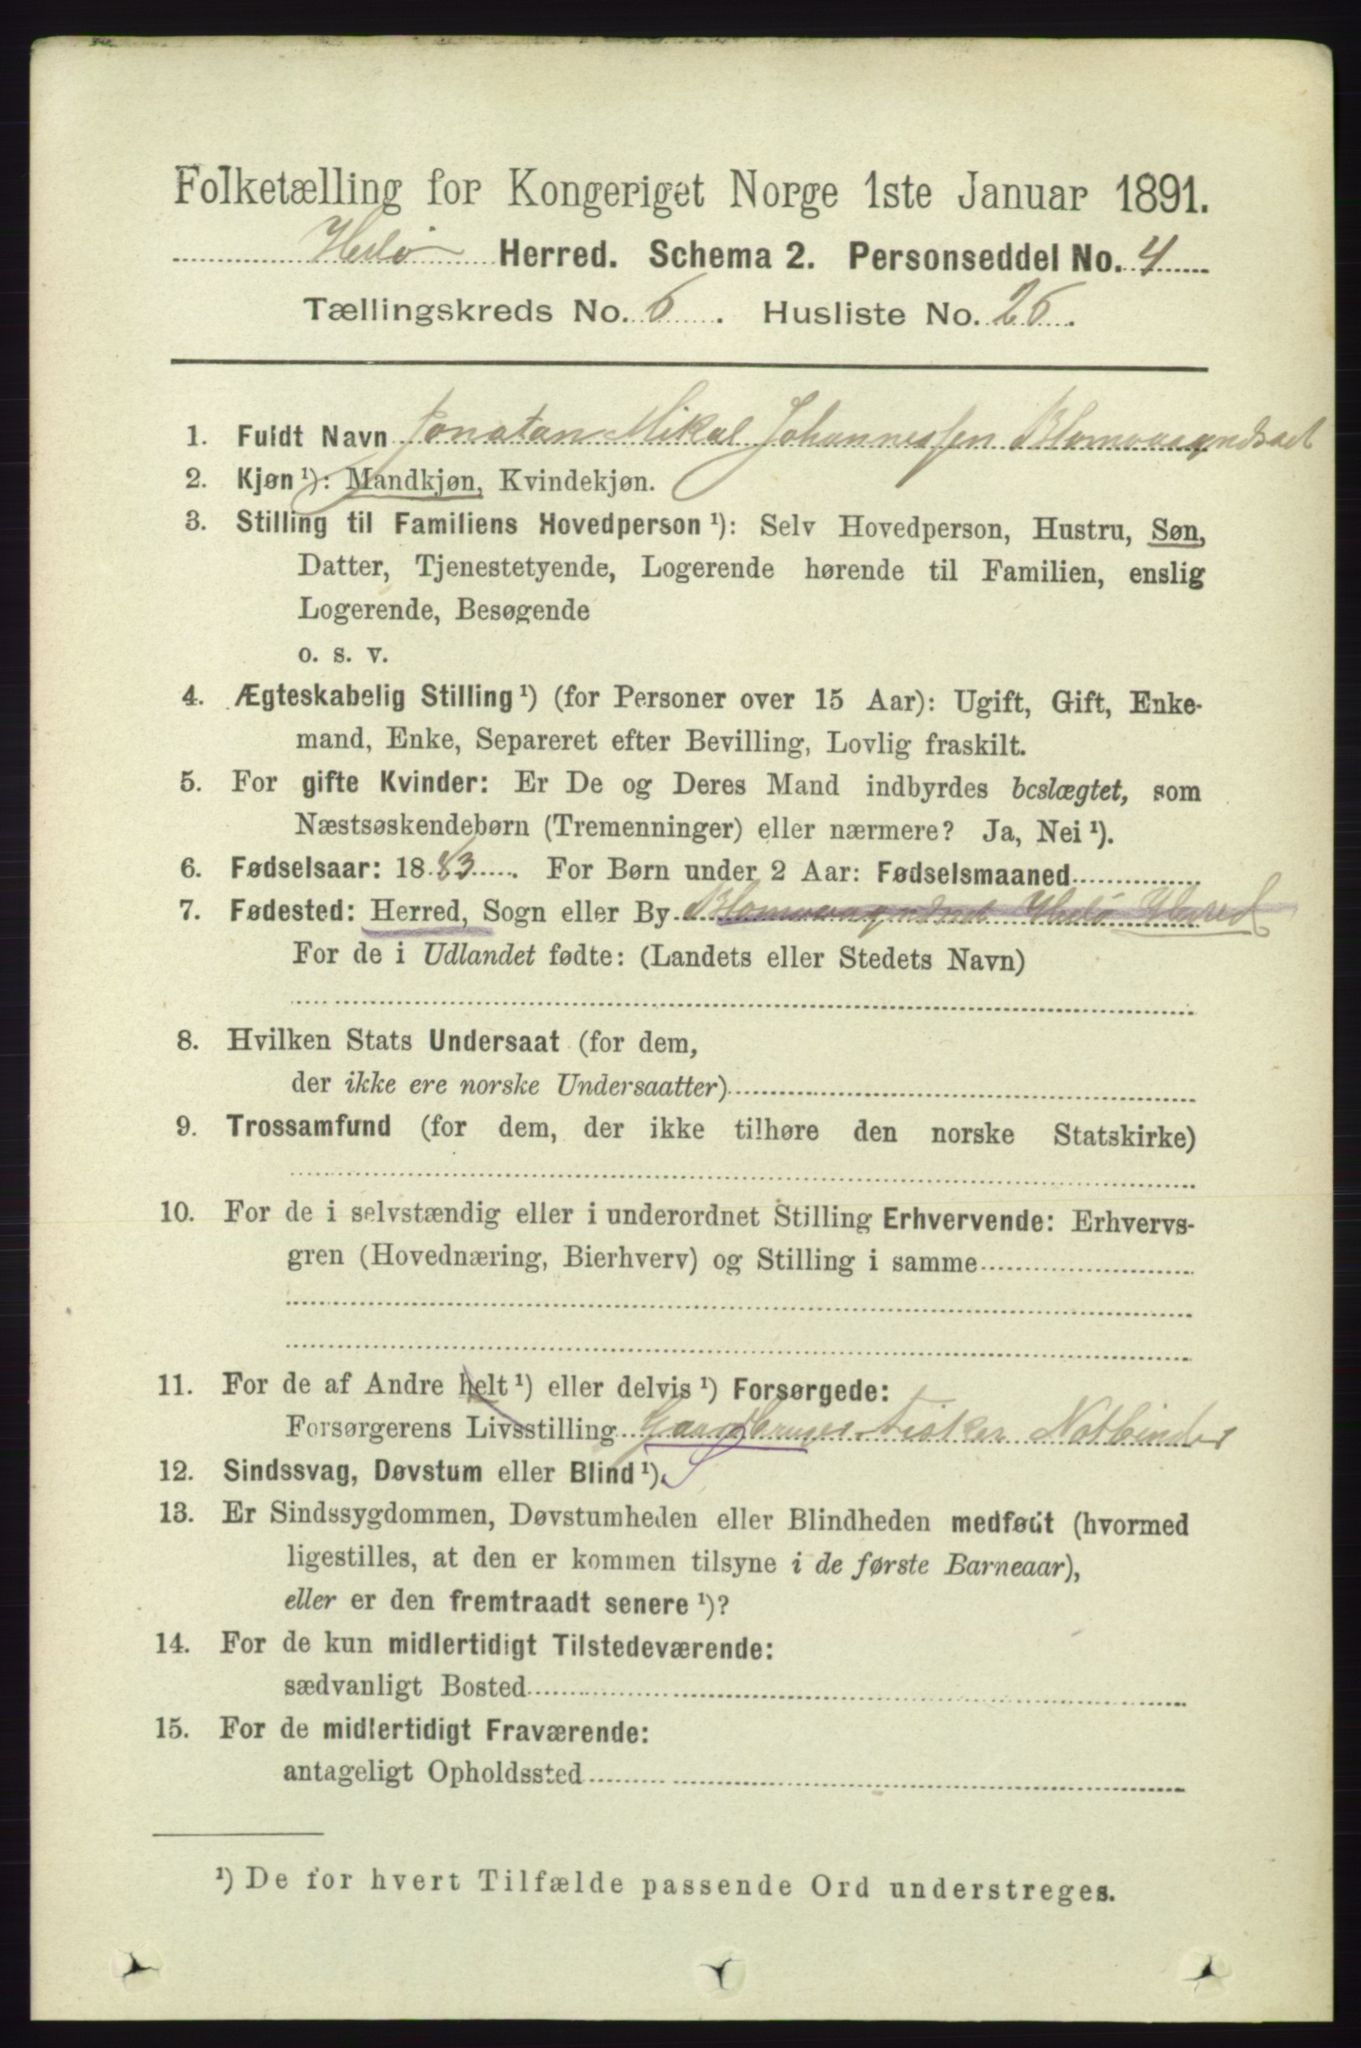 Folketælling for Kongeriget Norge 1ste Januar 1891.
Herlø Herred. Schema 2. Personseddel No. 4
Tællingskreds No. 6. Husliste No. 26.
1. Fuldt Navn Jonatan Mikal Johannessen
2. Kjøn ¹): Mandkjøn, Kvindekjøn.
3. Stilling til Familiens Hovedperson ¹): Selv Hovedperson, Hustru, Søn,
Datter, Tjenestetyende, Logerende hørende til Familien, enslig
Logerende, Besøgende
o. s. v.
4. Ægteskabelig Stilling ¹) (for Personer over 15 Aar): Ugift, Gift, Enke-
mand, Enke, Separeret efter Bevilling, Lovlig fraskilt.
5. For gifte Kvinder: Er De og Deres Mand indbyrdes beslægtet, som
Næstsøskendebørn (Tremenninger) eller nærmere? Ja, Nei ¹).
6. Fødselsaar: 1883. For Børn under 2 Aar: Fødselsmaaned
7. Fødested: Herred, Sogn eller By Herlø Herred
For de i Udlandet fødte: (Landets eller Stedets Navn)
8. Hvilken Stats Undersaat (for dem,
der ikke ere norske Undersaatter)
9. Trossamfund (for dem, der ikke tilhøre den norske Statskirke)
10. For de i selvstændig eller i underordnet Stilling Erhvervende: Erhvervs-
gren (Hovednæring, Bierhverv) og Stilling i samme
11. For de af Andre helt ¹) eller delvis ¹) Forsørgede:
Forsørgerens Livsstilling Gaardbruger Fisker Notbinder
12. Sindssvag, Døvstum eller Blind ¹).
13. Er Sindssygdommen, Døvstumheden eller Blindheden medfødt (hvormed
ligestilles, at den er kommen tilsyne i de første Barneaar),
eller er den fremtraadt senere ¹)?
14. For de kun midlertidigt Tilstedeværende:
sædvanligt Bosted
15. For de midlertidigt Fraværende:
antageligt Opholdssted
¹) De for hvert Tilfælde passende Ord understreges.